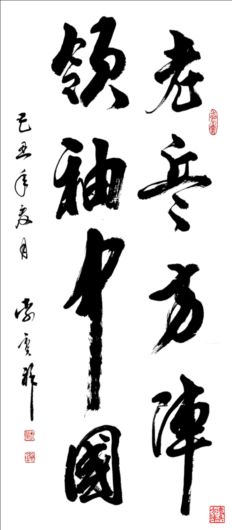 老兵方陣
領袖中國
己丑年夏月